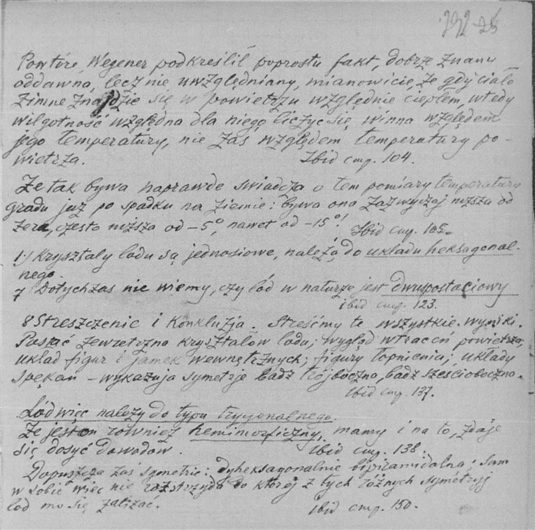 232
Powtóre, Wegener podkreślił poprostu fakt, dobrze znany
oddawna, lecz nie uwzględniany, mianowicie, że gdy ciało
zimne znajdzie się w powietrzu względnie ciepłem, wtedy
wilgotność względna dla niego liczyć się winna względem
jego temperatury, nie zaś względem temperatury po-
wietrza. Ibid стр. 104.
Że tak bywa naprawdę świadczą o tem pomiary temperatury
gradu już po spadku na ziemię: bywa ona zazwyczaj niższa od
zera, często niższa od -5° nawet od -15°! Ibid стр. 105.
Kryształy lodu są jednosiowe, należą do układu heksagonal-
nego.
7 Dotychczas nie wiemy, czy lód w naturze jest dwupostaciowy
ibid стр. 123.
8 Streszczenie i Konkluzja. Streśćmy te wszystkie wyniki.
Postać zewnętrzna kryształów lodu; wygląd wtrąceń powietrza;
układ figur i jamek wewnętrznych; figury topnienia; układy
spękań - wykazują symetrję bądź trójboczną, bądź sześcioboczną.
Ibid стр. 137.
Lód więc należy do typu trygonalnego.
Że jest on również hemimorficzny, mamy i na to, zdaje
się dosyć dowodów. Ibid стр. 138.
Dopuszcza zaś symetrię: dyheksagonalnie bipiramidalną; sam
w sobie więc nie rozstrzyga do której z tych różnych symetryj
lód ma się zaliczać. Ibid стр. 150.